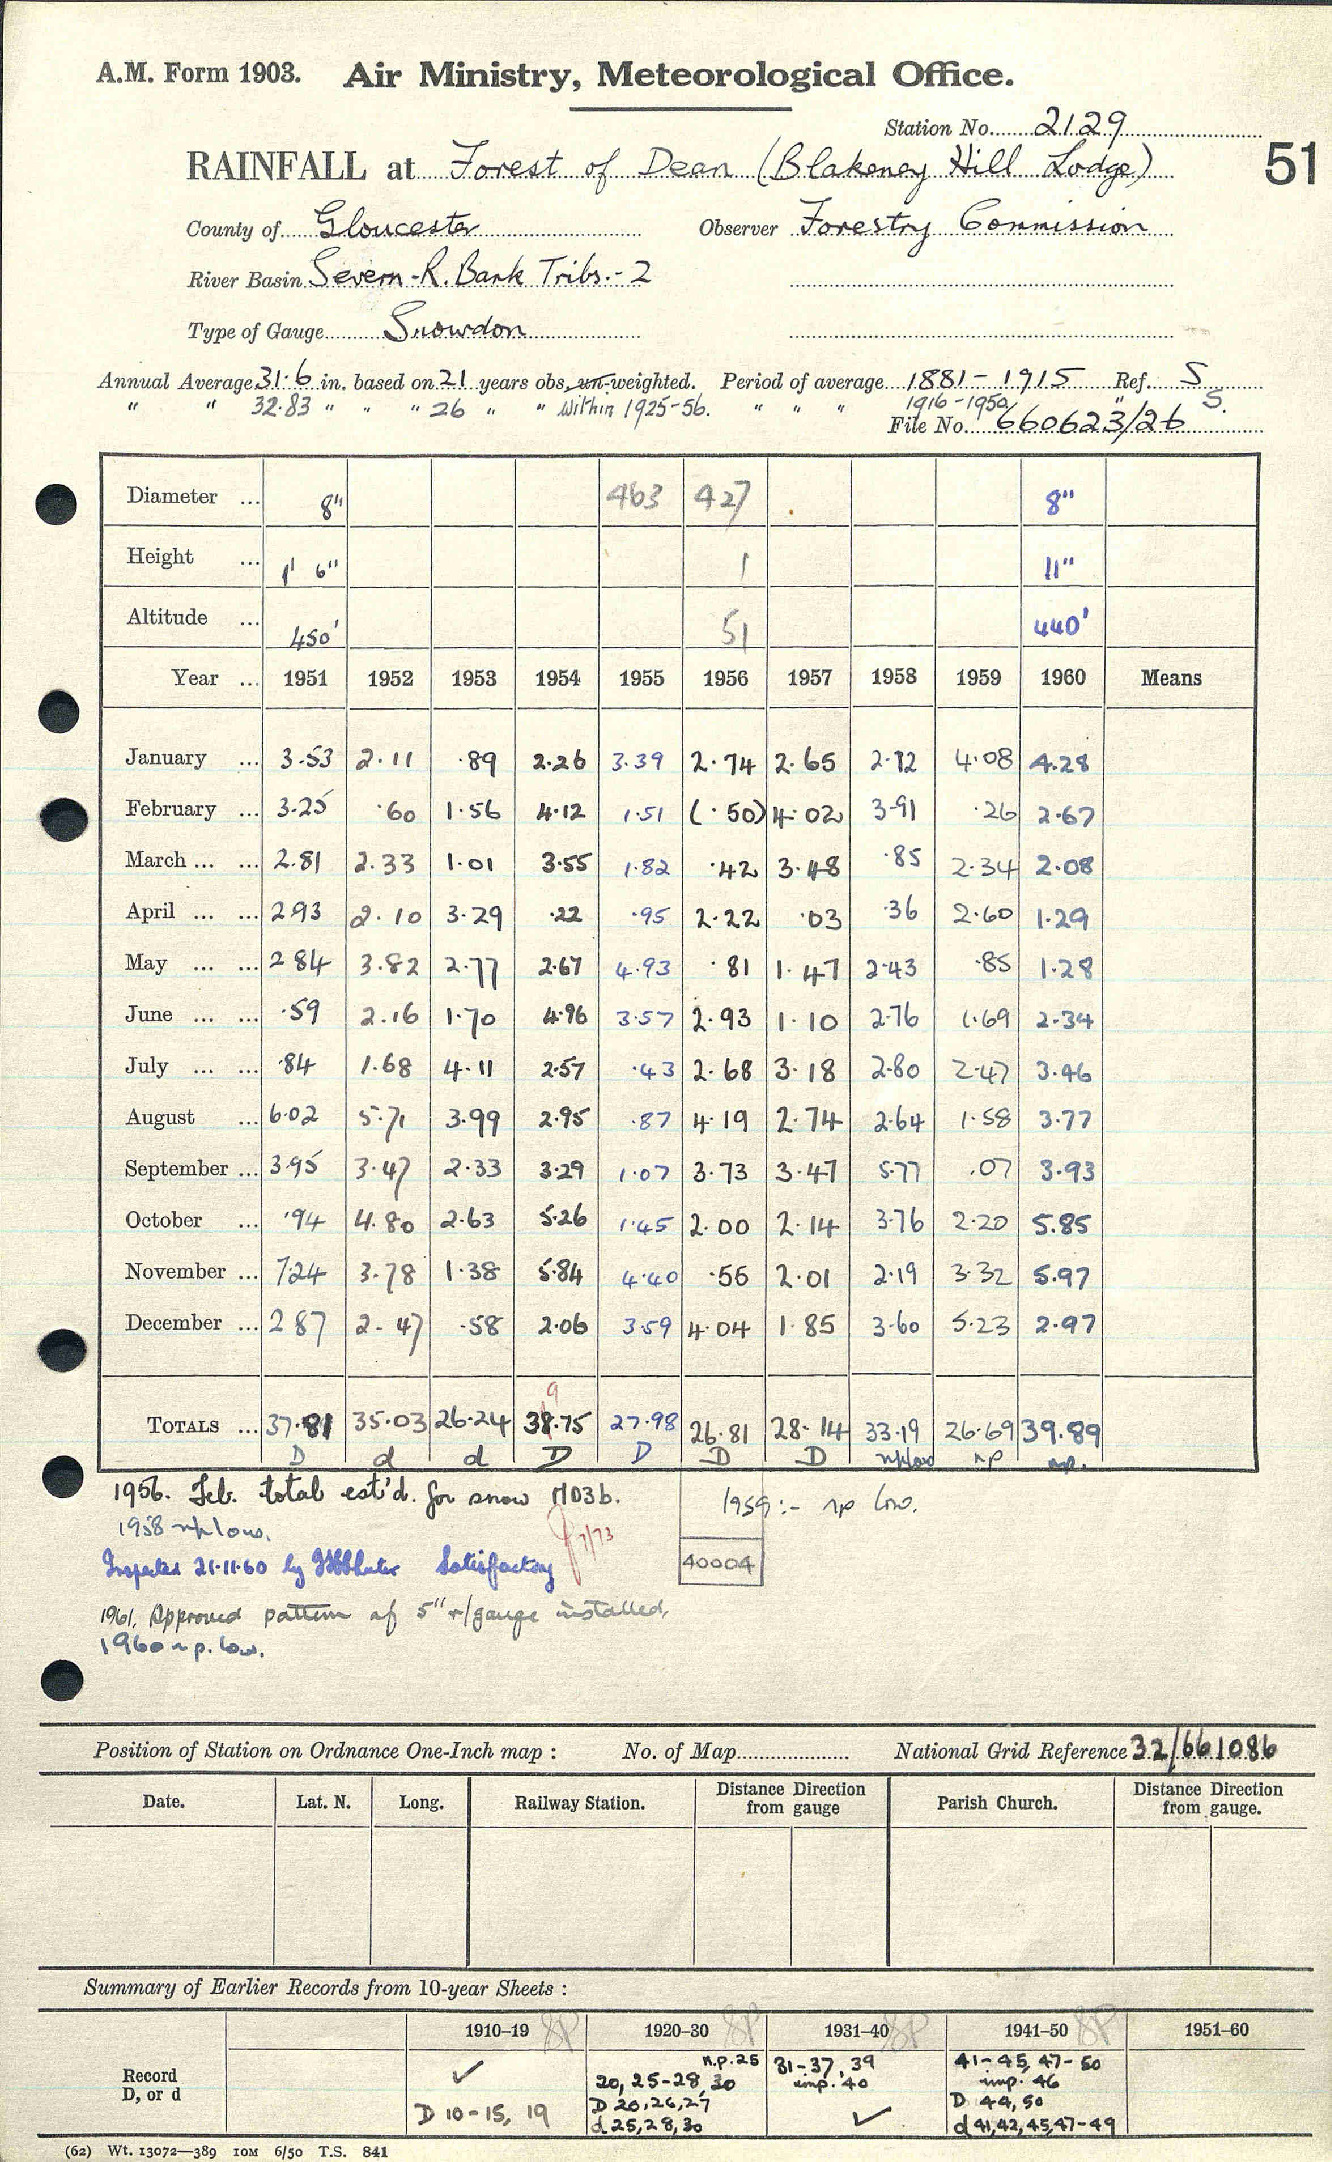 A.M. Form 1903. Air Ministry, Meteorological Office.
Station No. 2129
RAINFALL at Forest of Dean (Blakeney Hill Lodge) 51
County of Gloucester Observer Forestry Commission
River Basin Severn-R. Bank Tribs.-2
Type of Gauge Snowdon
Annual Average 31.6 in. based on 21 years obs, un-weighted. Period of average 1881-1915 Ref. S
" " 32.83 " " " 26 " " Within 1925-56. " " " 1916-1950 " S.
File No. 660623/26
Diameter ... 8" 463 427 8"
Height ... 1' 6" 1 11"
Altitude ... 450' 51 440'
Year ... 1951 1952 1953 1954 1955 1956 1957 1958 1959 1960 Means
January ... 3.53 2.11 .89 2.26 3.39 2.74 2.65 2.92 4.08 4.28
February ... 3.25 .60 1.56 4.12 1.51 (.50) 4.02 3.91 .26 2.67
March ... ... 2.81 2.33 1.01 3.55 1.82 .42 3.48 .85 2.34 2.08
April ... ... 2.93 2.10 3.29 .22 .95 2.22 .03 .36 2.60 1.29
May ... ... 2 84 3.82 2.77 2.67 4.93 .81 1.47 2.43 .85 1.28
June ... ... .59 2.16 1.70 4.96 3.57 2.93 1.10 2.76 1.69 2.34
July ... ... .84 1.68 4.11 2.57 .43 2.68 3.18 2.80 2.47 3.46
August ... 6.02 5.71 3.99 2.95 .87 4.19 2.74 2.64 1.58 3.77
September ... 3.95 3.47 2.33 3.29 1.07 3.73 3.47 5.77 .07 3.93
October ... .94 4.80 2.63 5.26 1.45 2.00 2.14 3.76 2.20 5.85
November ... 7.24 3.78 1.38 5.84 4.40 .55 2.01 2.19 3.32 5.97
December ... 2 87 2.47 .58 2.06 3.59 4.04 1.85 3.60 5.23 2.97
9
TOTALS ... 37.81 35.03 26.24 38.75 27.98 26.81 28.14 33.19 26.69 39.89
D d d D D D D np low np np.
1956. Feb. total est'd. for snow MO3b. 1959:- np low.
1958 np low. 7/73
Inspected 21.11.60 by Satisfactory 40004
1961. Approved pattern of 5" r/gauge installed.
1960 np. low.
Position of Station on Ordnance One-Inch map : No. of Map National Grid Reference 32/661086
Date. Lat. N. Long. Railway Station. Distance Direction from gauge Parish Church. Distance Direction from gauge.
Summary of Earlier Records from 10-year Sheets :
1910–19 SP 1920–30 SP 1931–40 SP 1941–50 SP 1951–60
Record D, or d
✓ n.p. 25 31-37, 39 41-45, 47-50
20, 25-28, 30 imp. '40 imp. 46
D 10-15, 19 D 20,26,27 ✓ D 44, 50
d 25,28,30 d 41,42,45,47-49
(62) Wt. 13072—389 10M 6/50 T.S. 841